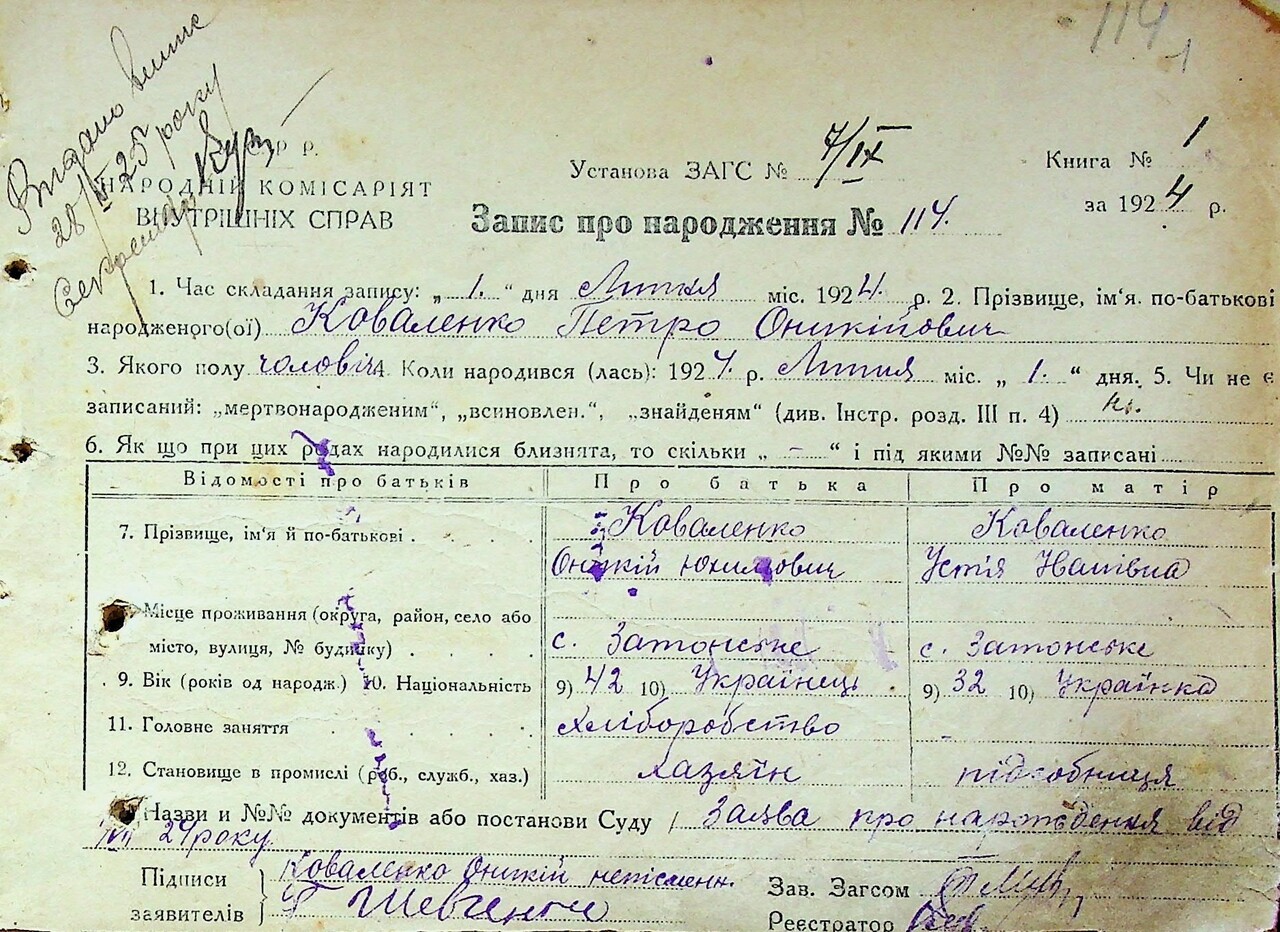 114
1
Видано витяг
28/ 25 року
Секретар
С Р Р.
НАРОДНІЙ КОМІСАРІЯТ
ВНУТРІШНІХ СПРАВ
Установа ЗАГС № 7/IX
Книга № 1
за 1924 р.
Запис про народження № 114.
1. Час складання запису: „ 1. “ дня Липня міс. 1924. р. 2. Прізвище, ім'я. по-батькові
народженого(ої) Коваленко Петро Оникійович
3. Якого полу чоловіч 4. Коли народився (лась): 1924. р. Липня міс. „ 1. “ дня. 5. Чи не є
записаний: „мертвонародженим“, „всиновлен.“, „знайденям“ (див. Інстр. розд. III п. 4) ні.
6. Як що при цих родах народилися близнята, то скільки „ – “ і під якими №№ записані
Відомості про батьків Про батька Про матір
7. Прізвище, ім'я й по-батькові Коваленко Коваленко
Оникій Юхимович Устія Іванівна
Місце проживання (округа, район, село або
місто, вулиця, № будинку) с. Затонське с. Затонське
9. Вік (років од народж.) 10. Національність 9) 42 10) Українець 9) 32 10) Українка
11. Головне заняття хліборобство
12. Становище в промислі (роб., служб., хаз.) хазяїн підсобниця
Назви и №№ документів або постанови Суду Заява про народження від
1/VII 24 року.
Підписи Коваленко Оникій неписьменн.
заявителів Шевченко
Зав. Загсом
Реєстратор